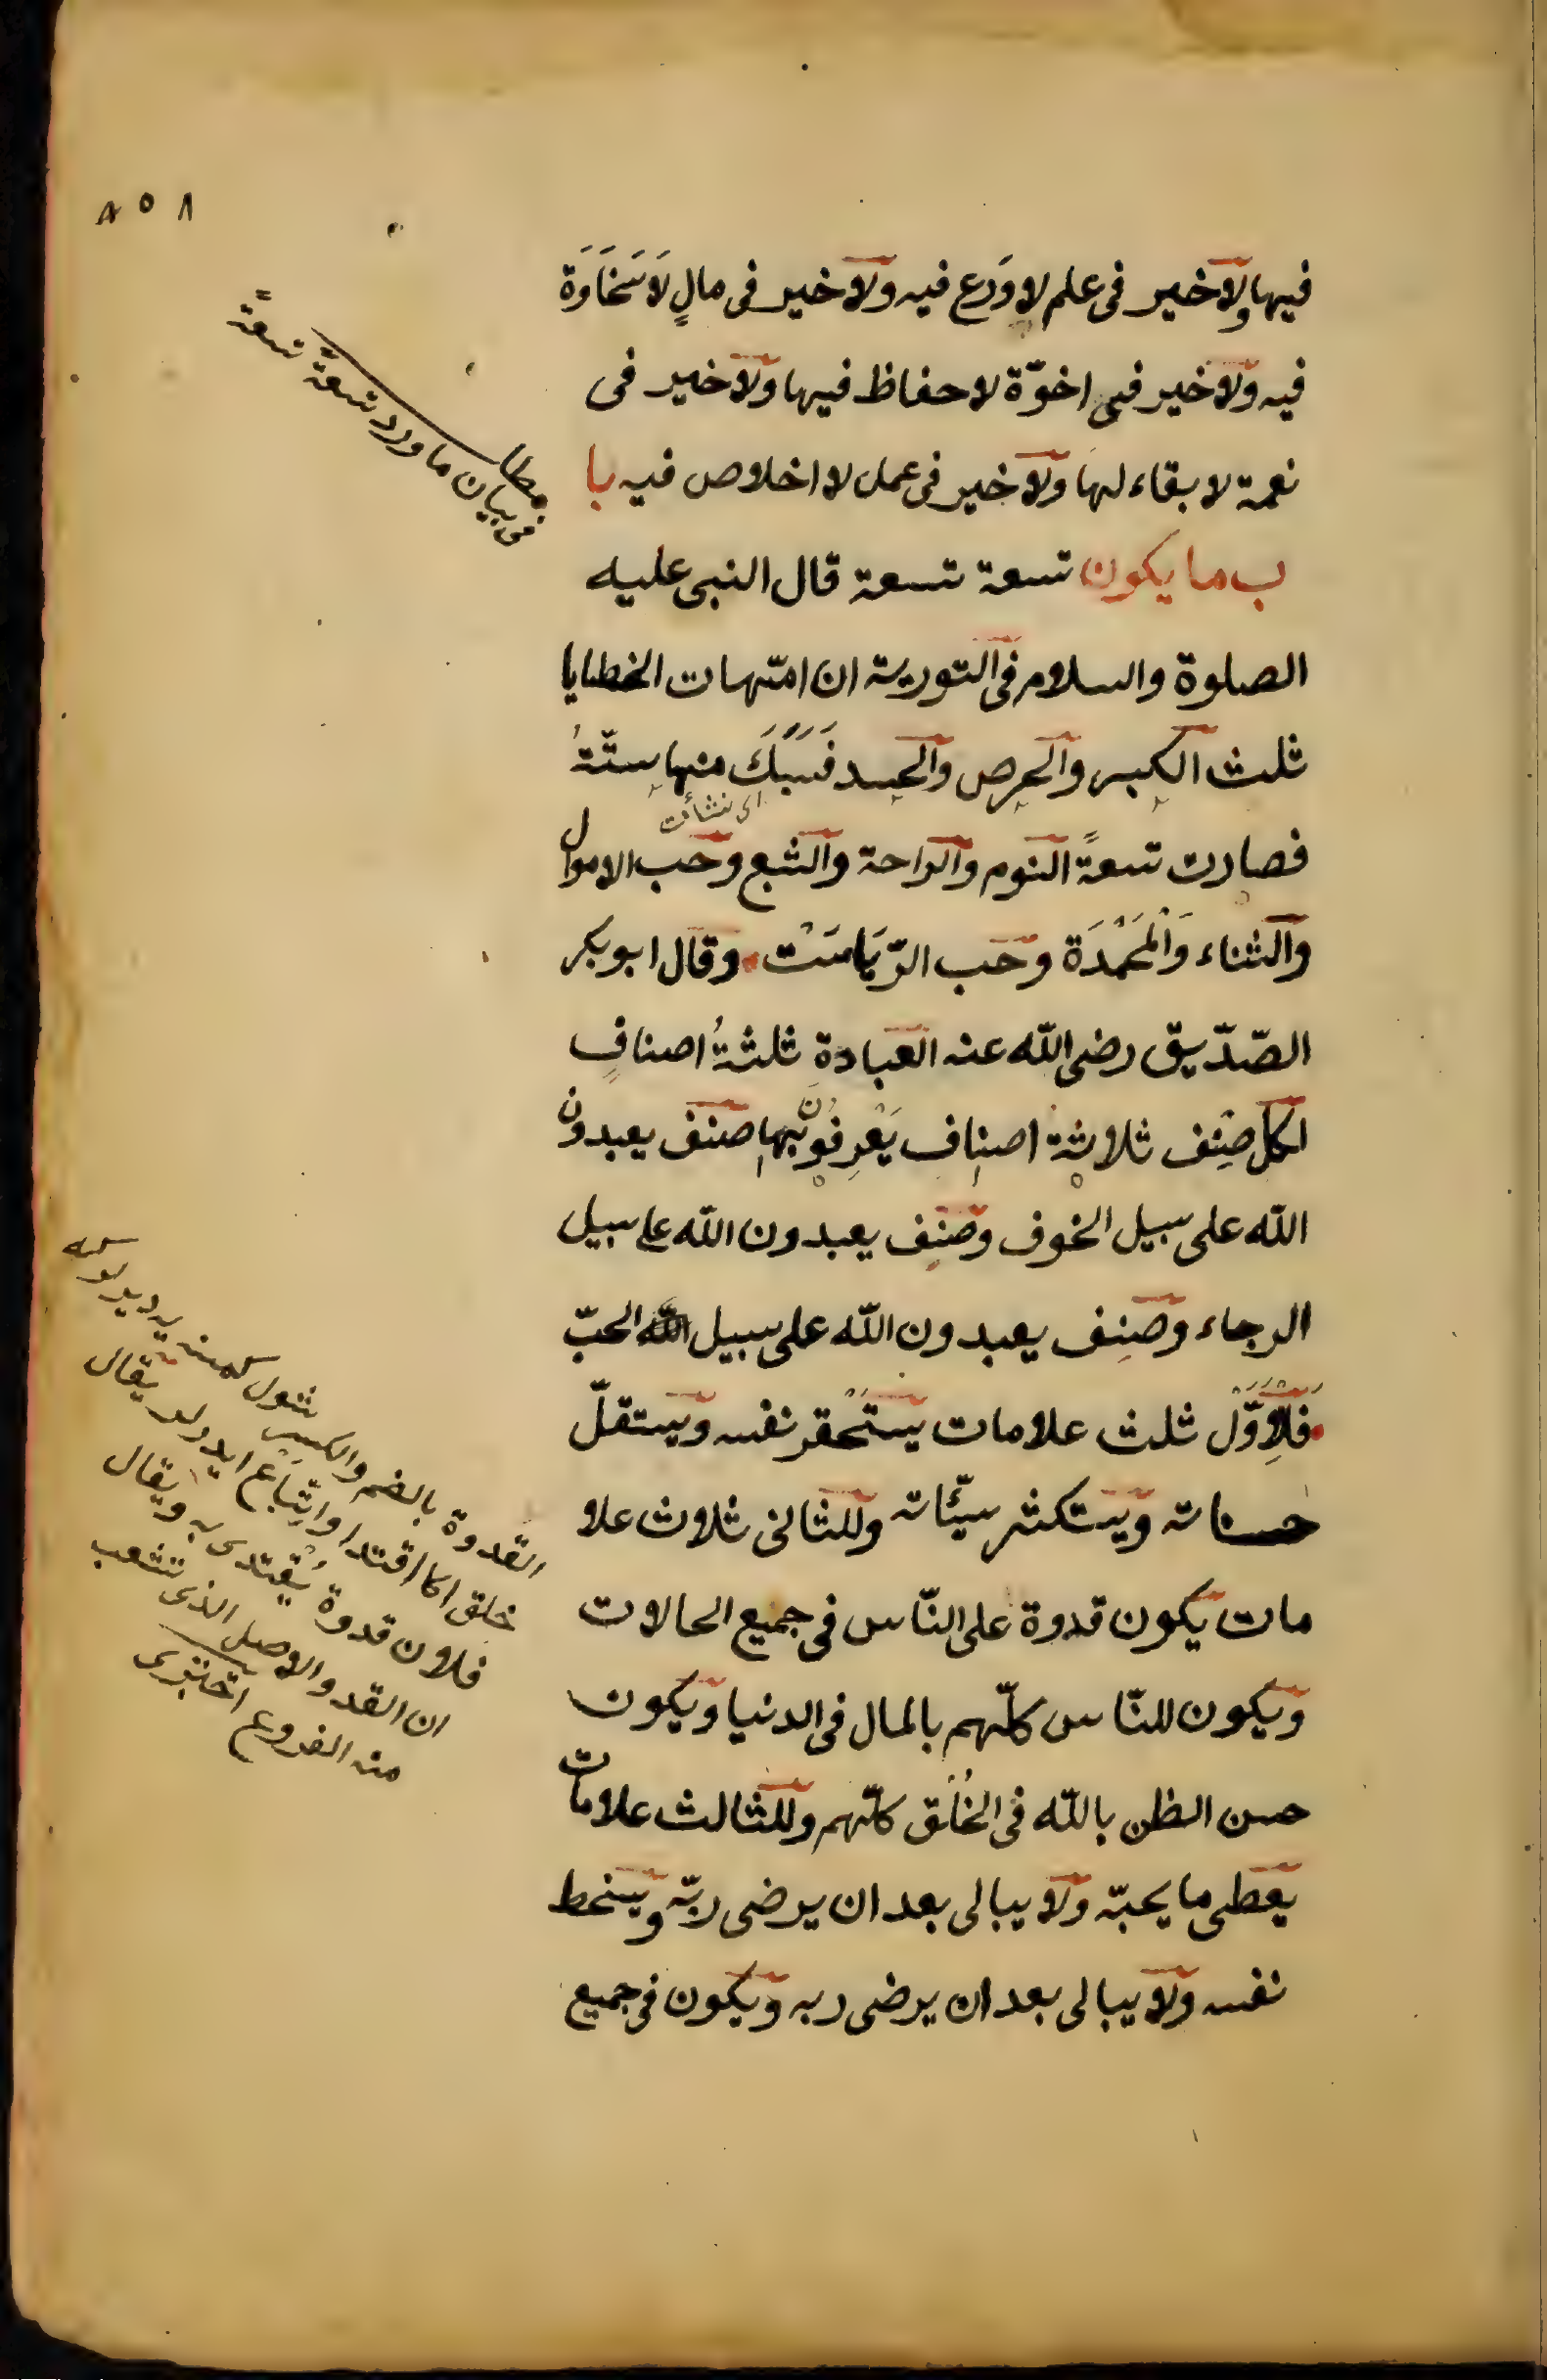 ٨٥٨
فيها ولا خير فى علم لا وَرع فيه ولا خير فى مالٍ لَا سَخَاوَة
فيه ولا خير فى اخوّة لا حفاظ فيها ولا خير فى
نعمة لا بقاء لها ولا خير فى عمل لا اخلاص فيه با
ب ما يكون تسعة تسعة قال النبى عليه
الصلوة والسلام فى التورية ان امّهات الخطايا
ثلث الكِبر والحِرص والحسد فنسبك منها سِتّةُ
اى نشأت
فصارت تسعةً النوم والراحة والشبع وحب الاموال
والثناء وَالْمَحْمَدَة وحَب الرّيَاسَتْ وقال ابو بكر
الصّدّيق رضى اللّه عنه العبادةِ ثلثةُ اصنافٍ
لكلّ صِنف ثلاثة اصناف يَعْرِفُونَ بها صنف يعبدون
اللّه على سبيل الخوف وصِنف يعبدون اللّه على سبيل
الرجاء وصِنف يعبدون اللّه على سبيل اللّه الحبّ
فَلِلاَوَّلْ ثلث علامات يستَحْقر نفسه ويستقلّ
حسناته ويستكثر سيّئاته وللثانى ثلاث علا
مات يكون قدوة على النّاس فى جميع الحالات
ويكون للنّاس كلّهم بالمال فى الدنيا ويكون
حسن الظن باللّه فى الخَلق كلّهم وللثالث علامات
يعطى ما يحبّه ولا يبالى بعد ان يرضى ربّه ويسخط
نفسه ولا يبالى بعد ان يرضى ربه ويكون فى جميع
مطا
فى بيان ما ورد تسعةً تسعةً
القدوة بالضم والكسر شول كمسنه يه ديرلر كه
خلق اكا اقتدا واتّباع ايدرلر يقال
فلان قدوة يُقتدى به ويقال
ان القدو الاصل الذى تنشعب
منه الفروع اخترى